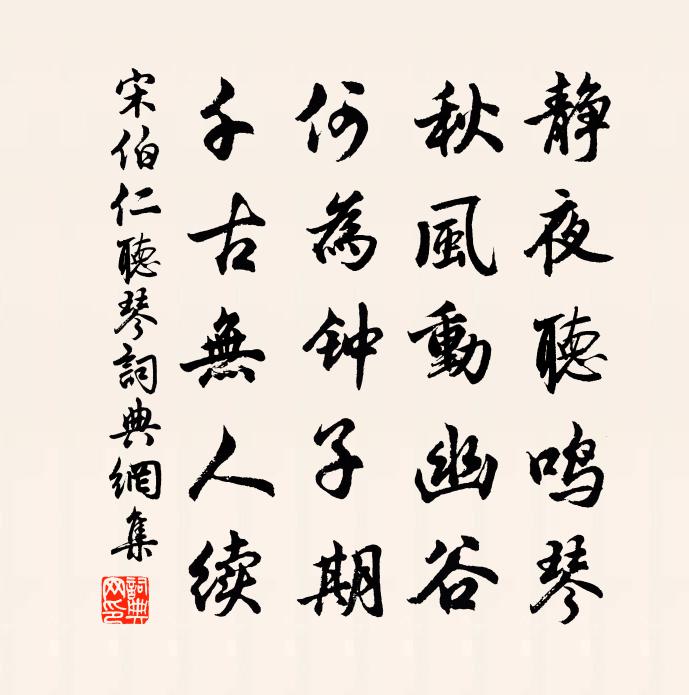 静夜聽鸣琴
秋風動幽谷
何為钟子期
千古無人续
宋伯仁聽琴詞典網集
詞典网印